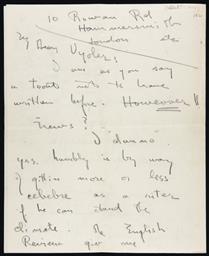 10 Rowan Rd.
Hammersmith
London
My dear Vydes,
I am as you say
a to not to have
written before. However!!
Frews?
I dunno.
yes. humbly is by way
of gittin more or less
celebre as a riter
if he can stand the
climate. The English
Review give me